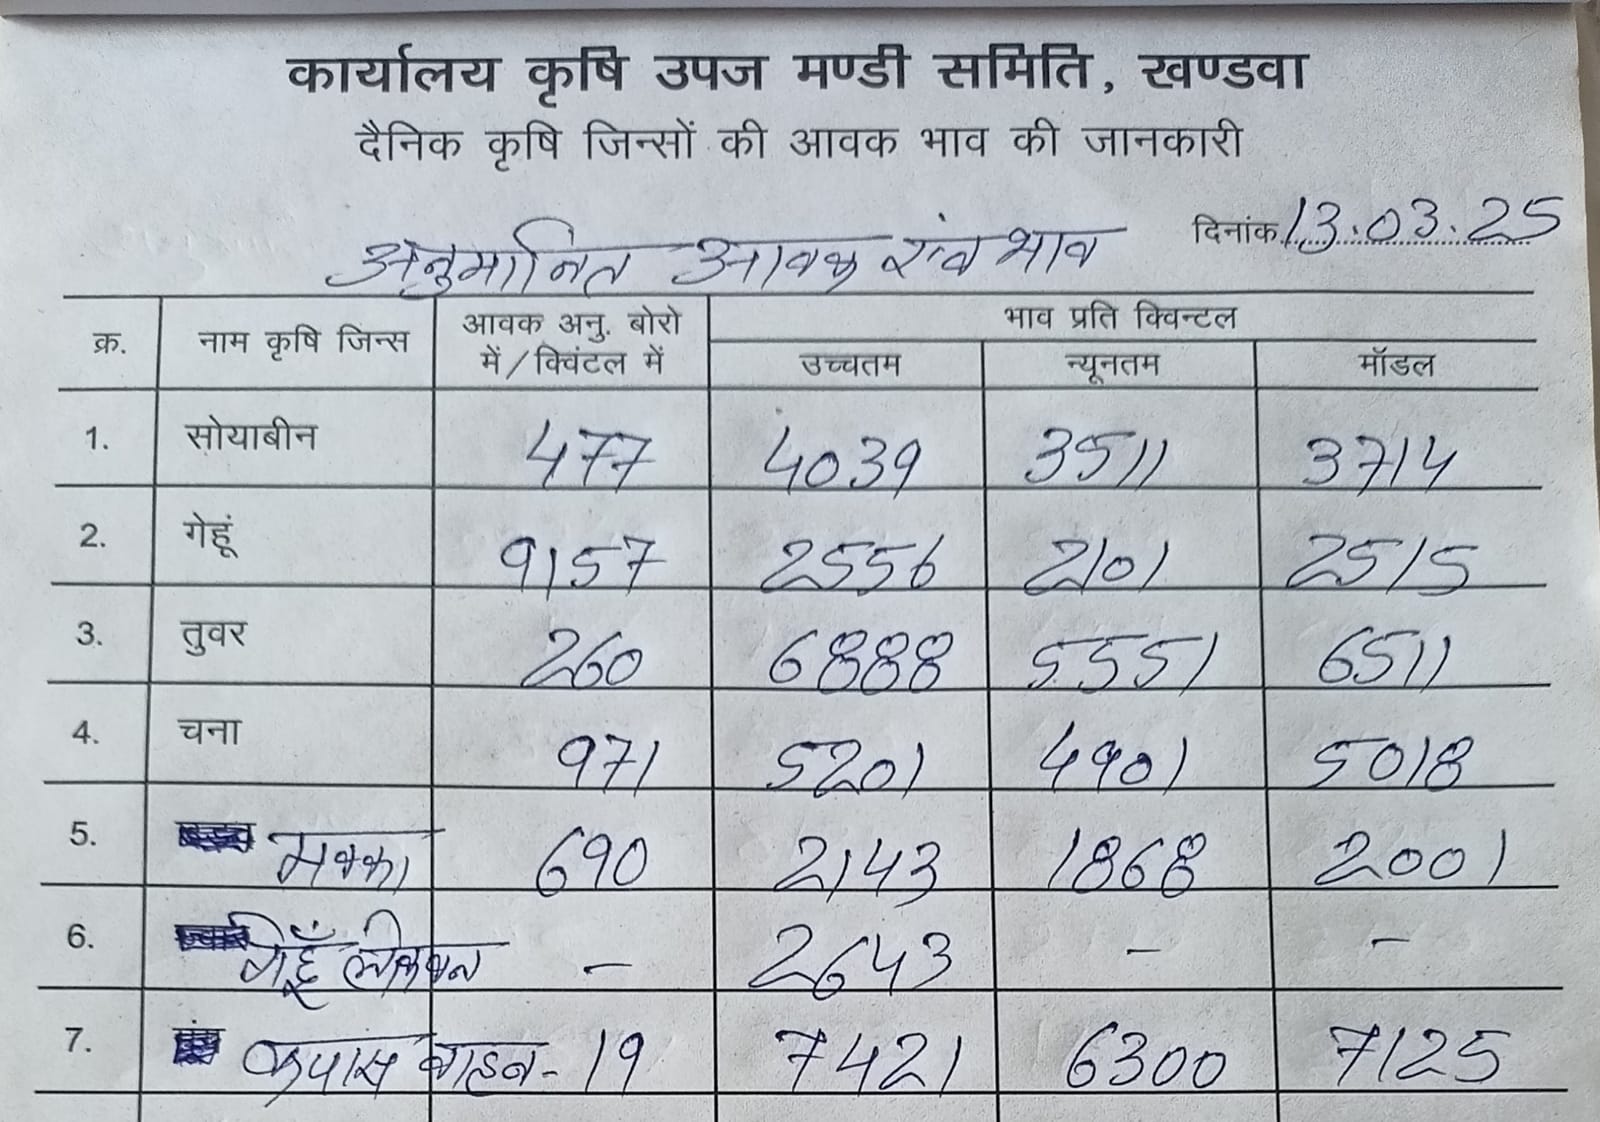 कार्यालय कृषि उपज मण्डी समिति, खण्डवा
दैनिक कृषि जिन्सों की आवक भाव की जानकारी
दिनांक 13.03.25
अनुमानित आवक एंव भाव
क्र. नाम कृषि जिन्स आवक अनु. बोरो में / क्विंटल में भाव प्रति क्विन्टल
उच्चतम न्यूनतम मॉडल
1. सोयाबीन 477 4039 3511 3714
2. गेहूं 9157 2556 2101 2515
3. तुवर 260 6888 5551 6511
4. चना 971 5201 4901 5018
5. मक्का 690 2143 1868 2001
6. गेहूँ लोकवन - 2643 - -
7. कपास वाहन - 19 7421 6300 7125